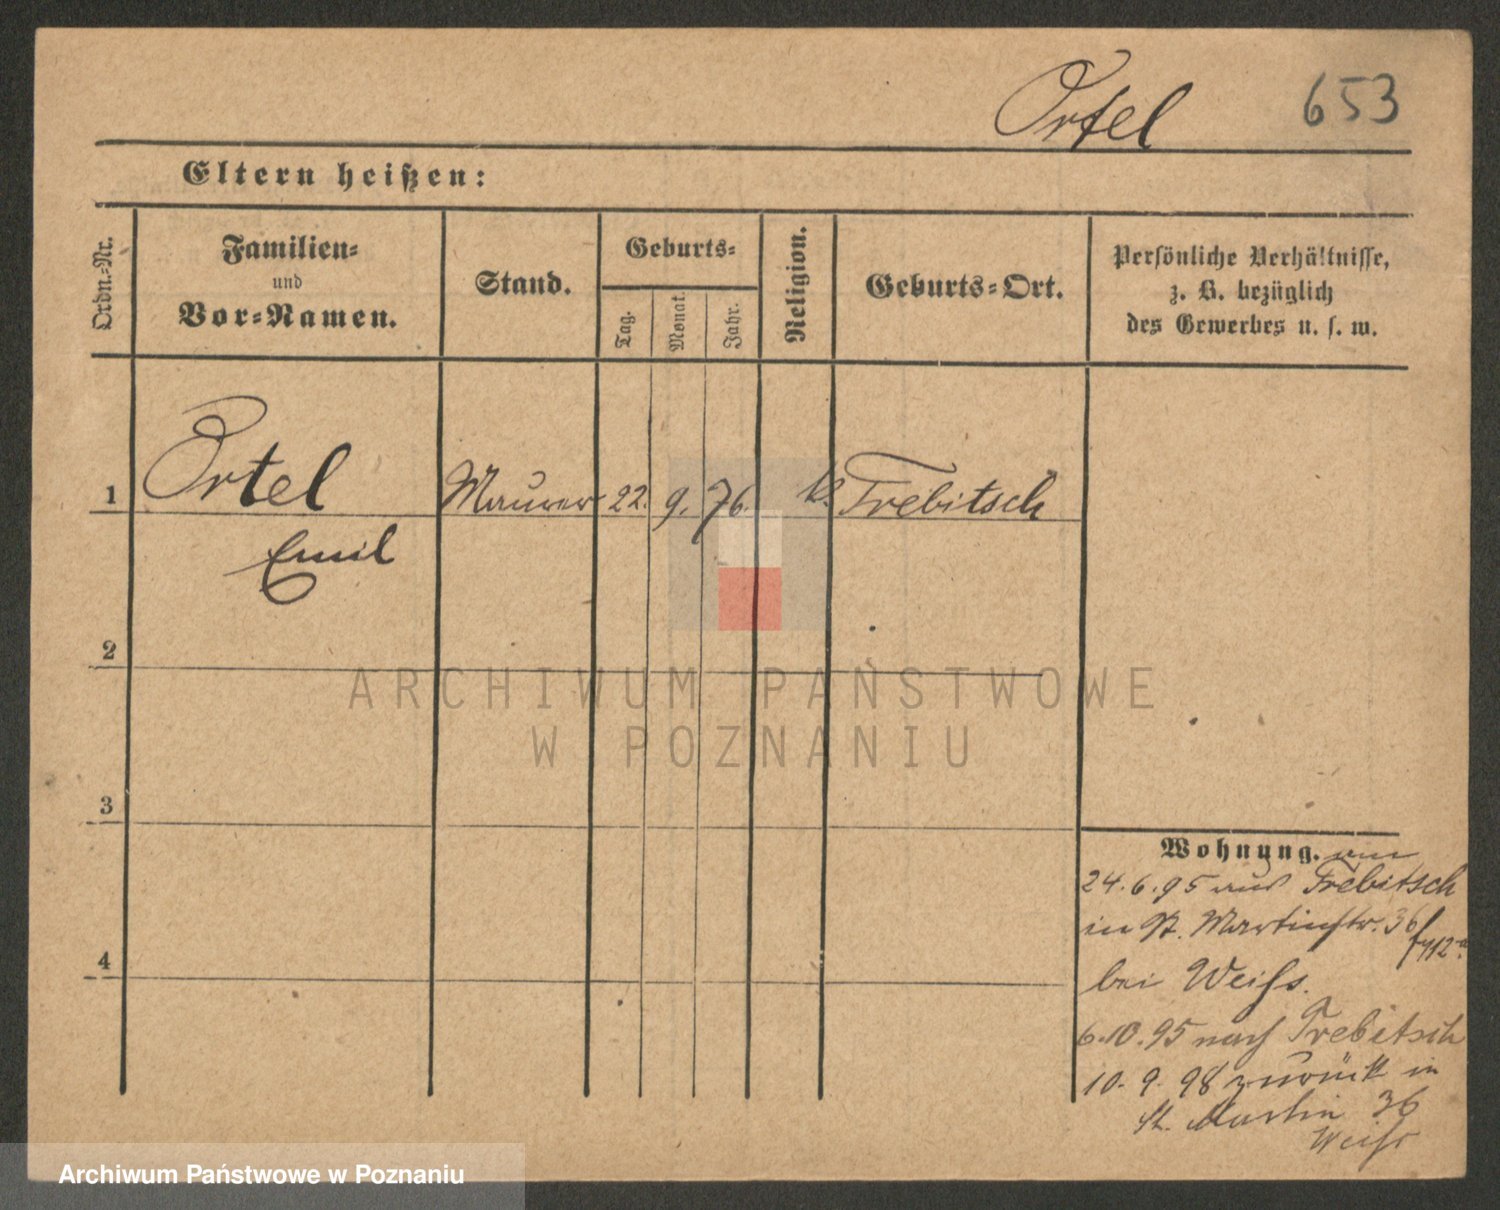 Ortel 653
Eltern heißen:
Ordn.-Nr.
Familien-
und
Vor-Namen.
Stand.
Geburts-
Tag.
Monat.
Jahr.
Religion.
Geburts-Ort.
Persönliche Verhältnisse,
z. B. bezüglich
des Gewerbes u. s. w.
1 Ortel Maurer 22. 9. 76. k. Trebitsch
Emil
2
ARCHIWUM PAŃSTWOWE
W POZNANIU
3
4
Wohnung.
24.6.95 aus Trebitsch
in St. Martinstr. 36
bei Weiss.
6.10.95 nach Trebitsch
10.9.98 zurück in
St. Martin 36
Weiss
Archiwum Państwowe w Poznaniu